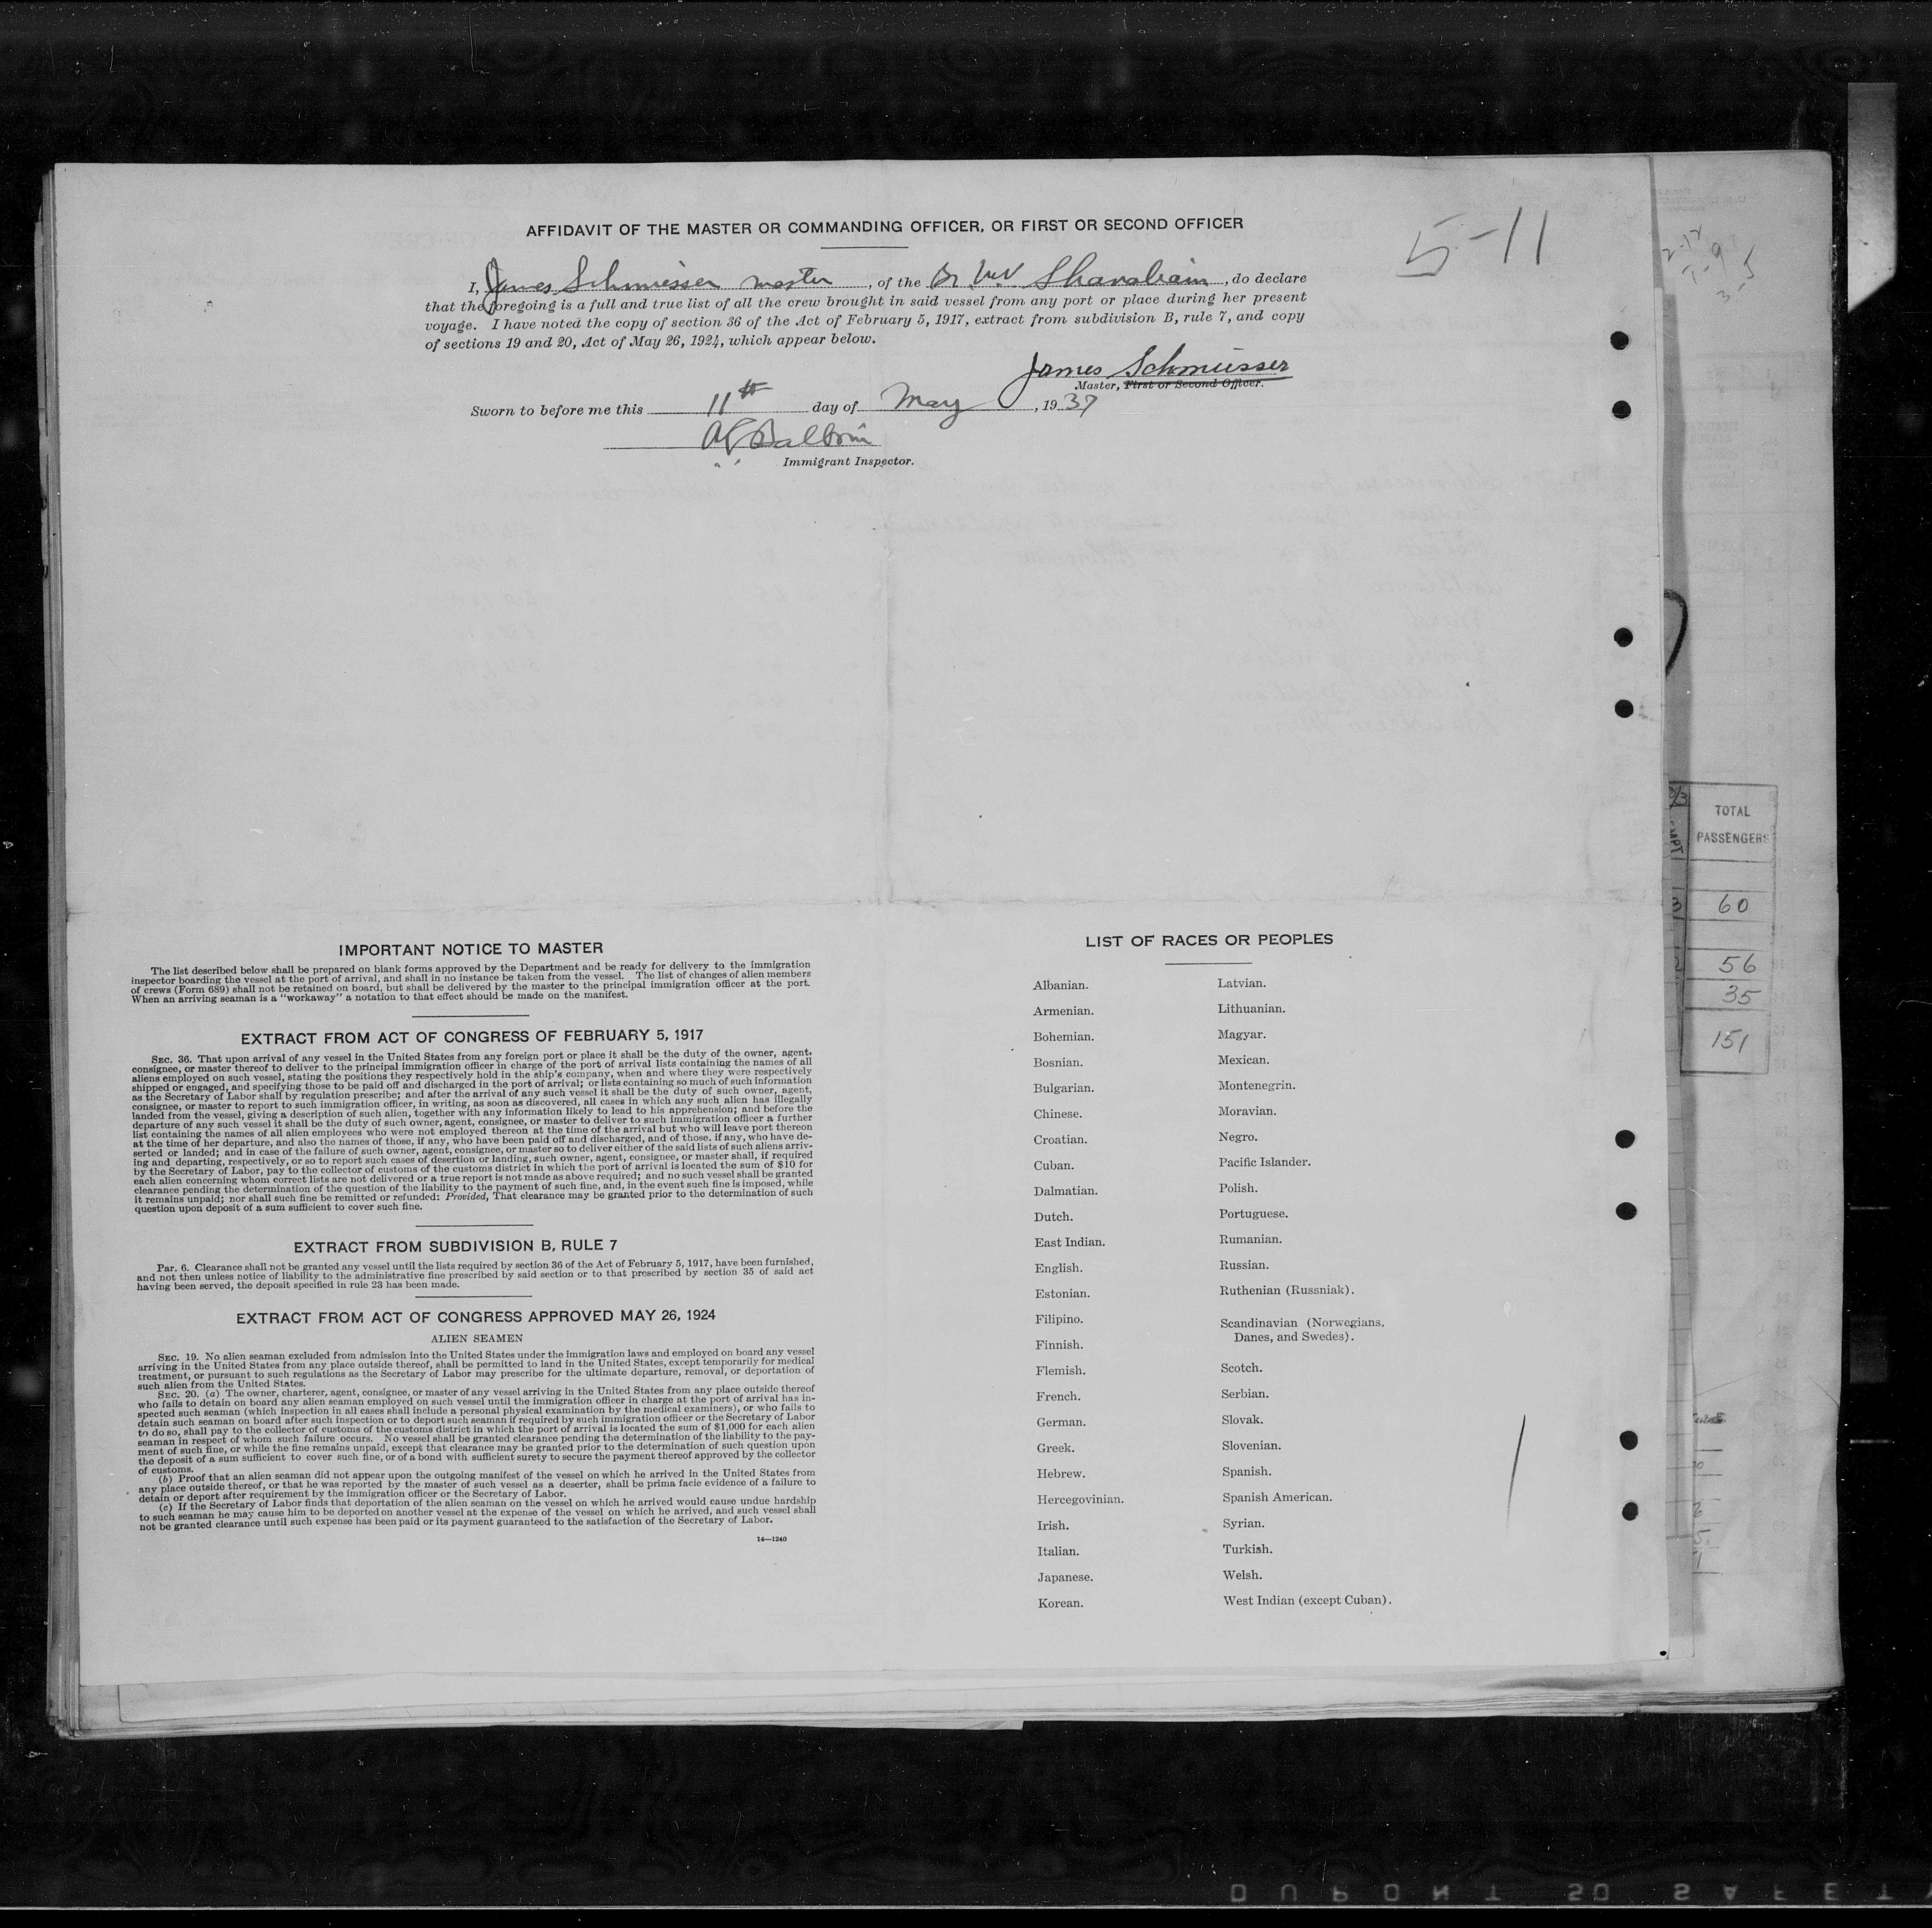 AFFIDAVIT OF THE MASTER OR COMMANDING OFFICER, OR FIRST OR SECOND OFFICER
5-11
I, James Schmeisser master, of the Br M.V., do declare
that the foregoing is a full and true list of all the crew brought in said vessel from any port or place during her present
voyage. I have noted the copy of section 36 of the Act of February 5, 1917, extract from subdivision B, rule 7, and copy
of sections 19 and 20, Act of May 26, 1924, which appear below.
James Schmeisser
Master, First or Second Officer.
Sworn to before me this 11th day of May, 1937
Immigrant Inspector.
IMPORTANT NOTICE TO MASTER
The list described below shall be prepared on blank forms approved by the Department and be ready for delivery to the immigration
inspector boarding the vessel at the port of arrival, and shall in no instance be taken from the vessel. The list of changes of alien members
of crews (Form 689) shall not be retained on board, but shall be delivered by the master to the principal immigration officer at the port.
When an arriving seaman is a "workaway" a notation to that effect should be made on the manifest.
EXTRACT FROM ACT OF CONGRESS OF FEBRUARY 5, 1917
SEC. 36. That upon arrival of any vessel in the United States from any foreign port or place it shall be the duty of the owner, agent,
consignee, or master thereof to deliver to the principal immigration officer in charge of the port of arrival lists containing the names of all
aliens employed on such vessel, stating the positions they respectively hold in the ship's company, when and where they were respectively
shipped or engaged, and specifying those to be paid off and discharged in the port of arrival; or lists containing so much of such information
as the Secretary of Labor shall by regulation prescribe; and after the arrival of any such vessel it shall be the duty of such owner, agent,
consignee, or master to report to such immigration officer, in writing, as soon as discovered, all cases in which any such alien has illegally
landed from the vessel, giving a description of such alien, together with any information likely to lead to his apprehension; and before the
departure of any such vessel it shall be the duty of such owner, agent, consignee, or master to deliver to such immigration officer a further
list containing the names of all alien employees who were not employed thereon at the time of the arrival but who will leave port thereon
at the time of her departure, and also the names of those, if any, who have been paid off and discharged, and of those, if any, who have de-
serted or landed; and in case of the failure of such owner, agent, consignee, or master so to deliver either of the said lists of such aliens arriv-
ing and departing, respectively, or so to report such cases of desertion or landing, such owner, agent, consignee, or master shall, if required
by the Secretary of Labor, pay to the collector of customs of the customs district in which the port of arrival is located the sum of $10 for
each alien concerning whom correct lists are not delivered or a true report is not made as above required; and no such vessel shall be granted
clearance pending the determination of the question of the liability to the payment of such fine, and, in the event such fine is imposed, while
it remains unpaid; nor shall such fine be remitted or refunded: Provided, That clearance may be granted prior to the determination of such
question upon deposit of a sum sufficient to cover such fine.
EXTRACT FROM SUBDIVISION B, RULE 7
Par. 6. Clearance shall not be granted any vessel until the lists required by section 36 of the Act of February 5, 1917, have been furnished,
and not then unless notice of liability to the administrative fine prescribed by said section or to that prescribed by section 35 of said act
having been served, the deposit specified in rule 23 has been made.
EXTRACT FROM ACT OF CONGRESS APPROVED MAY 26, 1924
ALIEN SEAMEN
SEC. 19. No alien seaman excluded from admission into the United States under the immigration laws and employed on board any vessel
arriving in the United States from any place outside thereof, shall be permitted to land in the United States, except temporarily for medical
treatment, or pursuant to such regulations as the Secretary of Labor may prescribe for the ultimate departure, removal, or deportation of
such alien from the United States.
SEC. 20. (a) The owner, charterer, agent, consignee, or master of any vessel arriving in the United States from any place outside thereof
who fails to detain on board any alien seaman employed on such vessel until the immigration officer in charge at the port of arrival has in-
spected such seaman (which inspection in all cases shall include a personal physical examination by the medical examiners), or who fails to
detain such seaman on board after such inspection or to deport such seaman if required by such immigration officer or the Secretary of Labor
to do so, shall pay to the collector of customs of the customs district in which the port of arrival is located the sum of $1,000 for each alien
seaman in respect of whom such failure occurs. No vessel shall be granted clearance pending the determination of the liability to the pay-
ment of such fine, or while the fine remains unpaid, except that clearance may be granted prior to the determination of such question upon
the deposit of a sum sufficient to cover such fine, or of a bond with sufficient surety to secure the payment thereof approved by the collector
of customs.
(b) Proof that an alien seaman did not appear upon the outgoing manifest of the vessel on which he arrived in the United States from
any place outside thereof, or that he was reported by the master of such vessel as a deserter, shall be prima facie evidence of a failure to
detain or deport after requirement by the immigration officer or the Secretary of Labor.
(c) If the Secretary of Labor finds that deportation of the alien seaman on the vessel on which he arrived would cause undue hardship
to such seaman he may cause him to be deported on another vessel at the expense of the vessel on which he arrived, and such vessel shall
not be granted clearance until such expense has been paid or its payment guaranteed to the satisfaction of the Secretary of Labor.
14—1240
LIST OF RACES OR PEOPLES
Albanian.
Armenian.
Bohemian.
Bosnian.
Bulgarian.
Chinese.
Croatian.
Cuban.
Dalmatian.
Dutch.
East Indian.
English.
Estonian.
Filipino.
Finnish.
Flemish.
French.
German.
Greek.
Hebrew.
Hercegovinian.
Irish.
Italian.
Japanese.
Korean.
Latvian.
Lithuanian.
Magyar.
Mexican.
Montenegrin.
Moravian.
Negro.
Pacific Islander.
Polish.
Portuguese.
Rumanian.
Russian.
Ruthenian (Russniak).
Scandinavian (Norwegians,
Danes, and Swedes).
Scotch.
Serbian.
Slovak.
Slovenian.
Spanish.
Spanish American.
Syrian.
Turkish.
Welsh.
West Indian (except Cuban).
TOTAL
PASSENGERS
60
56
35
151
DUPONT SO SAFETY